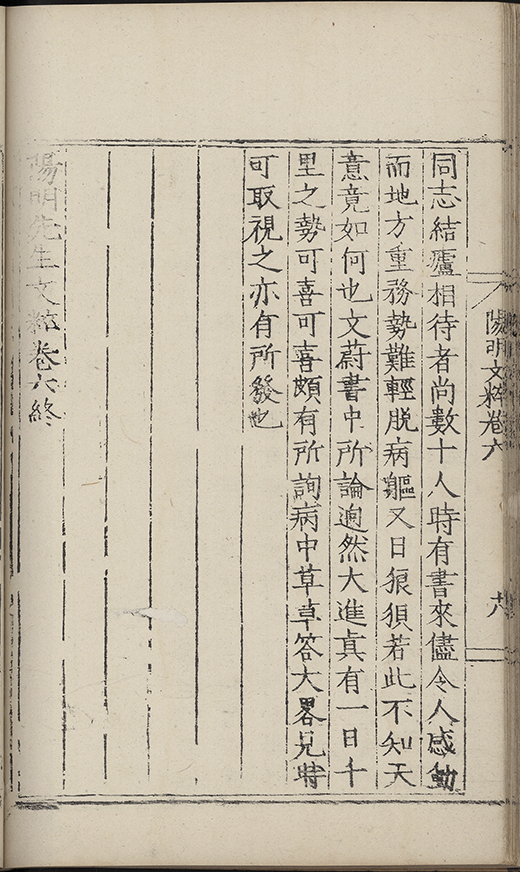 陽明文粹卷六
十八
同志結廬相待者尚數十人時有書來儘令人感動
而地方重務勢難輕脫病軀又日狼狽若此不知天
意竟如何也文蔚書中所論逈然大進真有一日千
里之勢可喜可喜頗有所詢病中草草答大畧見時
可取視之亦有所發也
陽明先生文粹卷六終